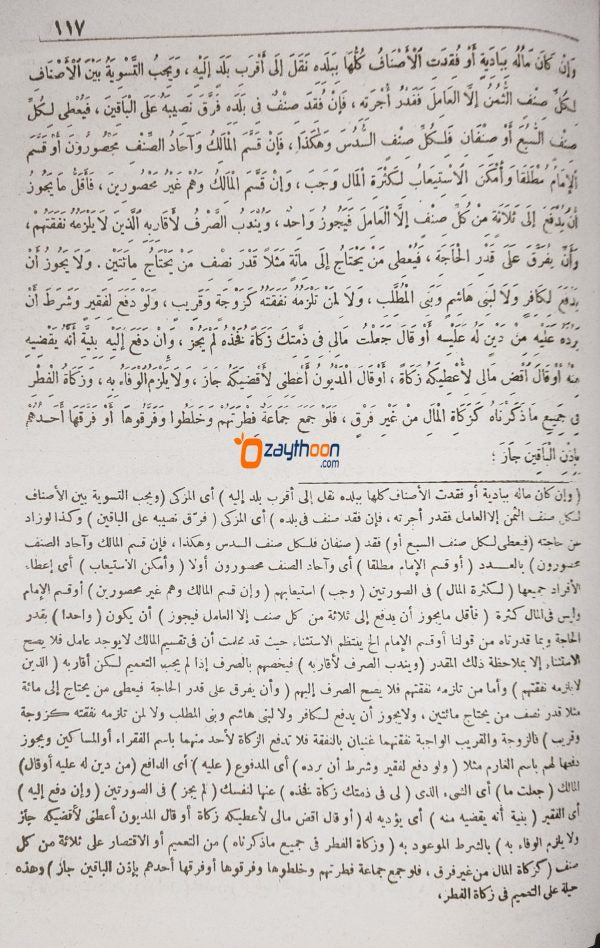 ١١٧
وَإِنْ كَانَ مَالُهُ بِبَادِيَةٍ أَوْ فُقِدَتِ الْأَصْنَافُ كُلُّهَا بِبَلَدِهِ نَقَلَ إِلَى أَقْرَبِ بَلَدٍ إِلَيْهِ ، وَيَجِبُ التَّسْوِيَةُ بَيْنَ الْأَصْنَافِ
لِكُلِّ صِنْفٍ الثُّمُنُ إِلَّا الْعَامِلَ فَقَدْرُ أُجْرَتِهِ ، فَإِنْ فُقِدَ صِنْفٌ فِى بَلَدِهِ فَرَّقَ نَصِيبَهُ عَلَى الْبَاقِينَ ، فَيُعْطِى لِكُلِّ
صِنْفٍ السُّبُعَ أَوْ صِنْفَانِ فَلِكُلِّ صِنْفٍ السُّدُسَ وَهَكَذَا ، فَإِنْ قَسَّمَ الْمَالِكُ وَآحَادُ الصِّنْفِ مَحْصُورُونَ أَوْ قَسَّمَ
الْإِمَامُ مُطْلَقًا وَأَمْكَنَ الْاِسْتِيعَابُ لِكَثْرَةِ الْمَالِ وَجَبَ ، وَإِنْ قَسَّمَ الْمَالِكُ وَهُمْ غَيْرُ مَحْصُورِينَ ، فَأَقَلُّ مَا يَجُوزُ
أَنْ يُدْفَعَ إِلَى ثَلَاثَةٍ مِنْ كُلِّ صِنْفٍ إِلَّا الْعَامِلَ فَيَجُوزُ وَاحِدٌ ، وَيُنْدَبُ الصَّرْفُ لِأَقَارِبِهِ الَّذِينَ لَا يَلْزَمُهُ نَفَقَتُهُمْ ،
وَأَنْ يُفَرَّقَ عَلَى قَدْرِ الْحَاجَةِ ، فَيُعْطِى مَنْ يَحْتَاجُ إِلَى مِائَةٍ مَثَلًا قَدْرَ نِصْفِ مَنْ يَحْتَاجُ مِائَتَيْنِ . وَلَا يَجُوزُ أَنْ
يَدْفَعَ لِكَافِرٍ وَلَا لِبَنِى هَاشِمٍ وَبَنِى الْمُطَّلِبِ ، وَلَا لِمَنْ تَلْزَمُهُ نَفَقَتُهُ كَزَوْجَةٍ وَقَرِيبٍ ، وَلَوْ دَفَعَ لِفَقِيرٍ وَشَرَطَ أَنْ
يَرُدَّهُ عَلَيْهِ مِنْ دَيْنٍ لَهُ عَلَيْهِ أَوْ قَالَ جَعَلْتُ مَالِى فِى ذِمَّتِكَ زَكَاةً فَخُذْهُ لَمْ يَجُزْ ، وَإِنْ دَفَعَ إِلَيْهِ بِنِيَّةِ أَنَّهُ يَقْضِيهِ
مِنْهُ أَوْ قَالَ اقْضِ مَالِى لِأُعْطِيَكَهُ زَكَاةً ، أَوْ قَالَ الْمَدْيُونُ أَعْطِنِى لِأَقْضِيَكَهُ جَازَ ، وَلَا يَلْزَمُ الْوَفَاءُ بِهِ ، وَزَكَاةُ الْفِطْرِ
فِى جَمِيعِ مَا ذَكَرْنَاهُ كَزَكَاةِ الْمَالِ مِنْ غَيْرِ فَرْقٍ ، فَلَوْ جَمَعَ جَمَاعَةٌ فِطْرَتَهُمْ وَخَلَطُوا وَفَرَّقُوهَا أَوْ فَرَّقَهَا أَحَدُهُمْ
بِإِذْنِ الْبَاقِينَ جَازَ ؛
zaythoon
.com
( وإن كان ماله ببادية أو فقدت الأصناف كلها ببلده نقل إلى أقرب بلد إليه ) أى المزكى (ويجب التسوية بين الأصناف
لكل صنف الثمن إلا العامل فقدر أجرته ، فإن فقد صنف فى بلده ) أى المزكى ( فرّق نصيبه على الباقين ) وكذا لو زاد
عن حاجته (فيعطى لكل صنف السبع أو) فقد ( صنفان فلكل صنف السدس وهكذا ، فإن قسم المالك وآحاد الصنف
محصورون ) بالعدد ( أو قسم الإمام مطلقا ) أى وآحاد الصنف محصورون أولا ( وأمكن الاستيعاب ) أى إعطاء
الأفراد جميعها ( لكثرة المال ) فى الصورتين ( وجب ) استيعابهم ( وإن قسم المالك وهم غير محصورين ) أو قسم الإمام
وليس فى المال كثرة ( فأقل ما يجوز أن يدفع إلى ثلاثة من كل صنف إلا العامل فيجوز ) أن يكون ( واحدا ) بقدر
الحاجة وبما قدرناه من قولنا أو قسم الإمام الخ ينتظم الاستثناء حيث قد علمت أن فى تقسيم المالك لا يوجد عامل فلا يصح
الاستثناء إلا بملاحظة ذلك المقدر (ويندب الصرف لأقاربه ) فيخصهم بالصرف إذا لم يجب التعميم لكن أقاربه ( الذين
لا يلزمه نفقتهم ) وأما من تلزمه نفقتهم فلا يصح الصرف إليهم ( وأن يفرق على قدر الحاجة فيعطى من يحتاج إلى مائة
مثلا قدر نصف من يحتاج مائتين ، ولا يجوز أن يدفع لكافر ولا لبنى هاشم وبنى المطلب ولا لمن تلزمه نفقته كزوجة
وقريب ) فالزوجة والقريب الواجبة نفقتهما غنيان بالنفقة فلا تدفع الزكاة لأحد منهما باسم الفقراء أو المساكين ويجوز
دفعها لهم باسم الغارم مثلا ( ولو دفع لفقير وشرط أن يرده ) أى المدفوع ( عليه ) أى الدافع (من دين له عليه أو قال)
المالك ( جعلت ما) أى الشىء الذى ( لى فى ذمتك زكاة فخذه ) عنها لنفسك ( لم يجز ) فى الصورتين ( وإن دفع إليه )
أى الفقير ( بنية أنه يقضيه منه ) أى يؤديه له ( أو قال اقض مالى لأعطيكه زكاة أو قال المديون أعطنى لأقضيكه جاز
ولا يلزم الوفاء به ) بالشرط الموعود به ( وزكاة الفطر فى جميع ما ذكرناه ) من التعميم أو الاقتصار على ثلاثة من كل
صنف ( كزكاة المال من غير فرق ، فلو جمع جماعة فطرتهم وخلطوها وفرقوها أو فرقها أحدهم بإذن الباقين جاز ) وهذه
حيلة على التعميم فى زكاة الفطر ،